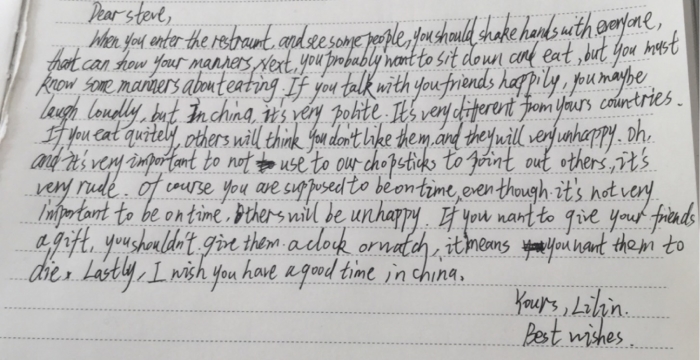 Dear steve,
When you enter the restraunt, and see some people, you should shake hands with everyone,
that can show your manners, Next, you probably want to sit down and eat, but you must
know some manners about eating. If you talk with you friends happily, you maybe
laugh loudly, but In china, it's very polite. It's very different from yours countries.
If you eat quitely, others will think you don't like them, and they will very unhappy. Oh,
and it's very important to not use to our chopsticks to point out others, it's
very rude. Of course you are supposed to be on time, even though it's not very
important to be on time, others will be unhappy. If you want to give your friends
a gift, you shouldn't give them a clock or watch, it means you want them to
die. Lastly, I wish you have a good time in china.
Yours, Lilin.
Best wishes.